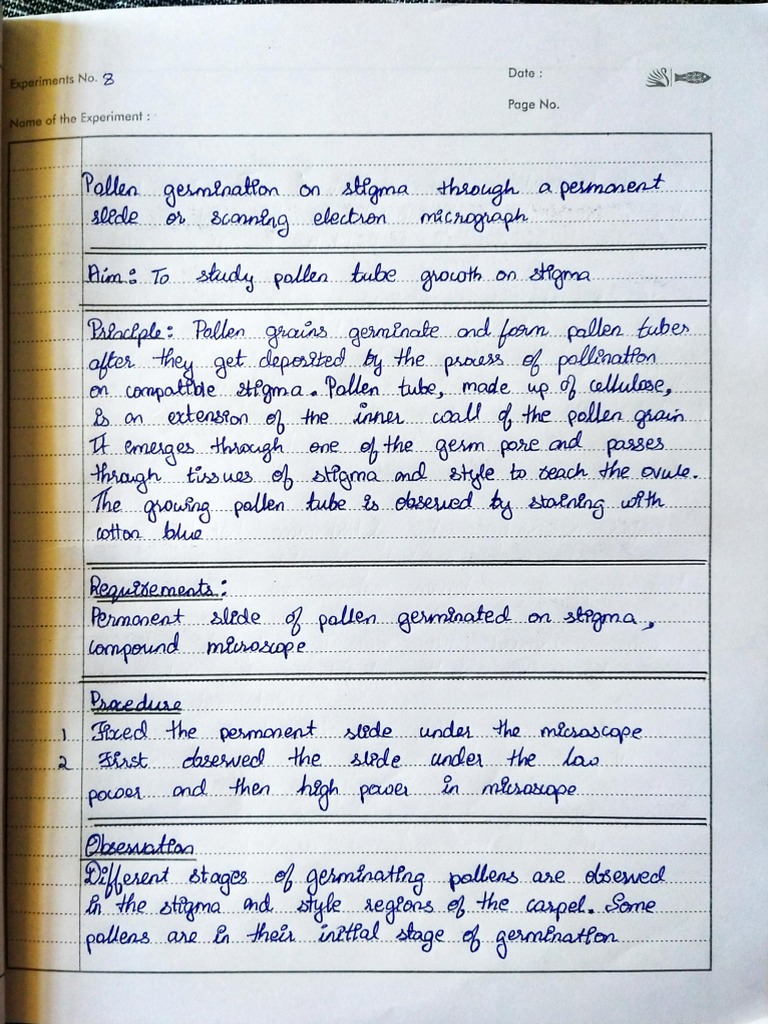 Experiments No. 8
Date :
Page No.
Name of the Experiment :
Pollen germination on stigma through a permanent
slide or scanning electron micrograph
Aim: To study pollen tube growth on stigma
Principle: Pollen grains germinate and form pollen tubes
after they get deposited by the process of pollination
on compatible stigma. Pollen tube, made up of cellulose,
is an extension of the inner wall of the pollen grain
It emerges through one of the germ pore and passes
through tissues of stigma and style to reach the ovule.
The growing pollen tube is observed by staining with
cotton blue
Requirements:
Permanent slide of pollen germinated on stigma,
compound microscope
Procedure
1 Fixed the permanent slide under the microscope
2 First observed the slide under the low
power and then high power in microscope
Observation
Different stages of germinating pollens are observed
in the stigma and style regions of the carpel. Some
pollens are in their initial stage of germination